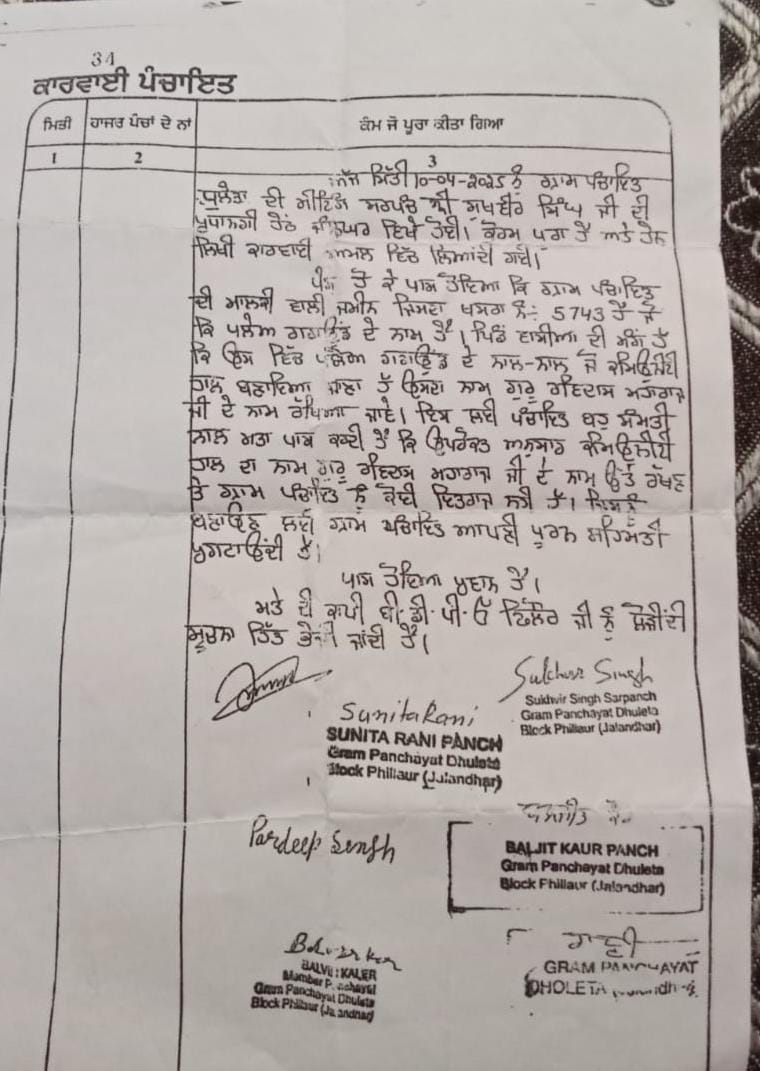 34
ਕਾਰਵਾਈ ਪੰਚਾਇਤ
ਮਿਤੀ
ਹਾਜਰ ਪੰਚਾਂ ਦੇ ਨਾਂ
ਕੰਮ ਜੋ ਪੂਰਾ ਕੀਤਾ ਗਿਆ
1
2
3
ਅੱਜ ਮਿੱਤੀ 10-04-2025 ਨੂੰ ਗ੍ਰਾਮ ਪੰਚਾਇਤ
ਧੁਲੇਤਾ ਦੀ ਮੀਟਿੰਗ ਸਰਪੰਚ ਸ਼੍ਰੀ ਸੁਖਵੀਰ ਸਿੰਘ ਜੀ ਦੀ
ਪ੍ਰਧਾਨਗੀ ਹੇਠ ਵਿਖੇ ਹੋਈ। ਕੋਰਮ ਪੂਰਾ ਹੈ ਅਤੇ ਹੇਠ
ਲਿਖੀ ਕਾਰਵਾਈ ਅਮਲ ਵਿੱਚ ਲਿਆਂਦੀ ਗਈ।
ਪੇਸ਼ ਹੋ ਕੇ ਪਾਸ ਹੋਇਆ ਕਿ ਗ੍ਰਾਮ ਪੰਚਾਇਤ
ਦੀ ਮਾਲਕੀ ਵਾਲੀ ਜਮੀਨ ਜਿਸਦਾ ਖਸਰਾ ਨੰ: 5743 ਹੈ ਜੋ
ਕਿ ਪਲੇਅ ਗਰਾਊਂਡ ਦੇ ਨਾਮ ਹੈ। ਪਿੰਡ ਵਾਸੀਆ ਦੀ ਮੰਗ ਹੈ
ਕਿ ਉਸ ਵਿੱਚ ਪਲੇਅ ਗਰਾਊਂਡ ਦੇ ਨਾਲ-ਨਾਲ ਜੋ ਕਮਿਊਨਿਟੀ
ਹਾਲ ਬਣਾਇਆ ਜਾਣਾ ਹੈ ਉਸਦਾ ਨਾਮ ਗੁਰੂ ਰਵਿਦਾਸ ਮਹਾਰਾਜ
ਜੀ ਦੇ ਨਾਮ ਰੱਖਿਆ ਜਾਵੇ। ਇਸ ਲਈ ਪੰਚਾਇਤ ਬਹੁ ਸੰਮਤੀ
ਨਾਲ ਮਤਾ ਪਾਸ ਕਰਦੀ ਹੈ ਕਿ ਉਪਰੋਕਤ ਅਨੁਸਾਰ ਕਮਿਊਨਿਟੀ
ਹਾਲ ਦਾ ਨਾਮ ਗੁਰੂ ਰਵਿਦਾਸ ਮਹਾਰਾਜ ਜੀ ਦੇ ਨਾਮ ਉੱਤੇ ਰੱਖਣ
ਤੇ ਗ੍ਰਾਮ ਪੰਚਾਇਤ ਨੂੰ ਕੋਈ ਇਤਰਾਜ ਨਹੀ ਹੈ। ਜਿਸਨੂੰ
ਬਣਾਉਣ ਲਈ ਗ੍ਰਾਮ ਪੰਚਾਇਤ ਆਪਣੀ ਪੂਰਨ ਸਹਿਮਤੀ
ਪ੍ਰਗਟਾਉਂਦੀ ਹੈ।
ਪਾਸ ਹੋਇਆ ਪ੍ਰਵਾਨ ਹੈ।
ਮਤੇ ਦੀ ਕਾਪੀ ਬੀ.ਡੀ.ਪੀ.ਓ ਫਿਲੌਰ ਜੀ ਨੂੰ ਲੋੜੀਂਦੀ
ਸੂਚਨਾ ਹਿੱਤ ਭੇਜੀ ਜਾਂਦੀ ਹੈ।
Sukhvir Singh
Sukhvir Singh Sarpanch
Gram Panchayat Dhuleta
Block Phillaur (Jalandhar)
Sunita Rani
SUNITA RANI PANCH
Gram Panchayat Dhuleta
Block Phillaur (Jalandhar)
Pardeep Singh
ਬਲਜੀਤ ਕੌਰ
BALJIT KAUR PANCH
Gram Panchayat Dhuleta
Block Phillaur (Jalandhar)
KALER
Member Panchayat
Gram Panchayat Dhuleta
Block Phillaur (Jalandhar)
GRAM PANCHAYAT
DHOLETA